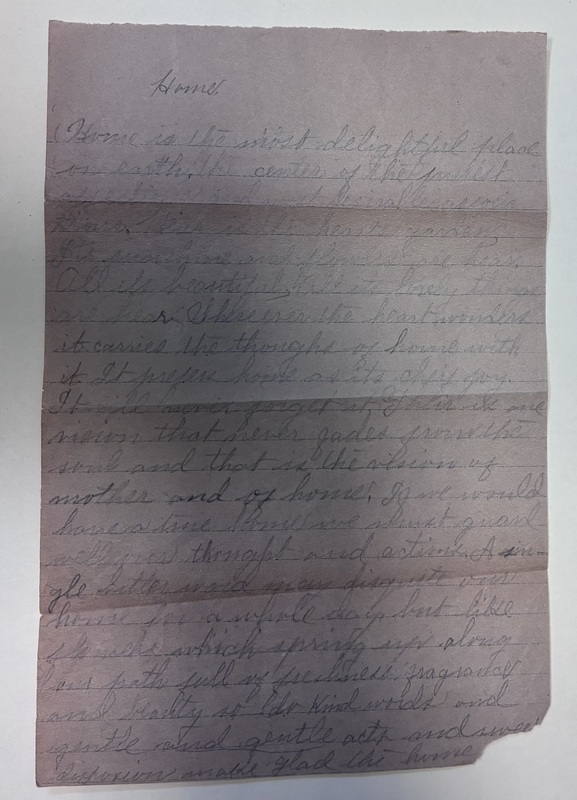 Home.
Home is the most delightful place
on earth, the center of the purest
affections and most desirable associa
tions. Here is the hearts garden.
Its sunshine and flowers are hear.
All its beautiful, all its lovely things
are hear. Where ever the heart wonders
it carries the thoughs of home with
it. It prefers home as its joy.
It will never forget it. There is one
vision that never fades from the
soul and that is the vision of
mother and of home. If we would
have a true home we must guard
well our thought and actions. A sin-
gle bitter word may disquite our
home for a whole day but like
flowers which spring up along
our path full of freshness, fragrance
and beauty so do kind words and
gentle and gentle acts and sweet
disposion make glad the home